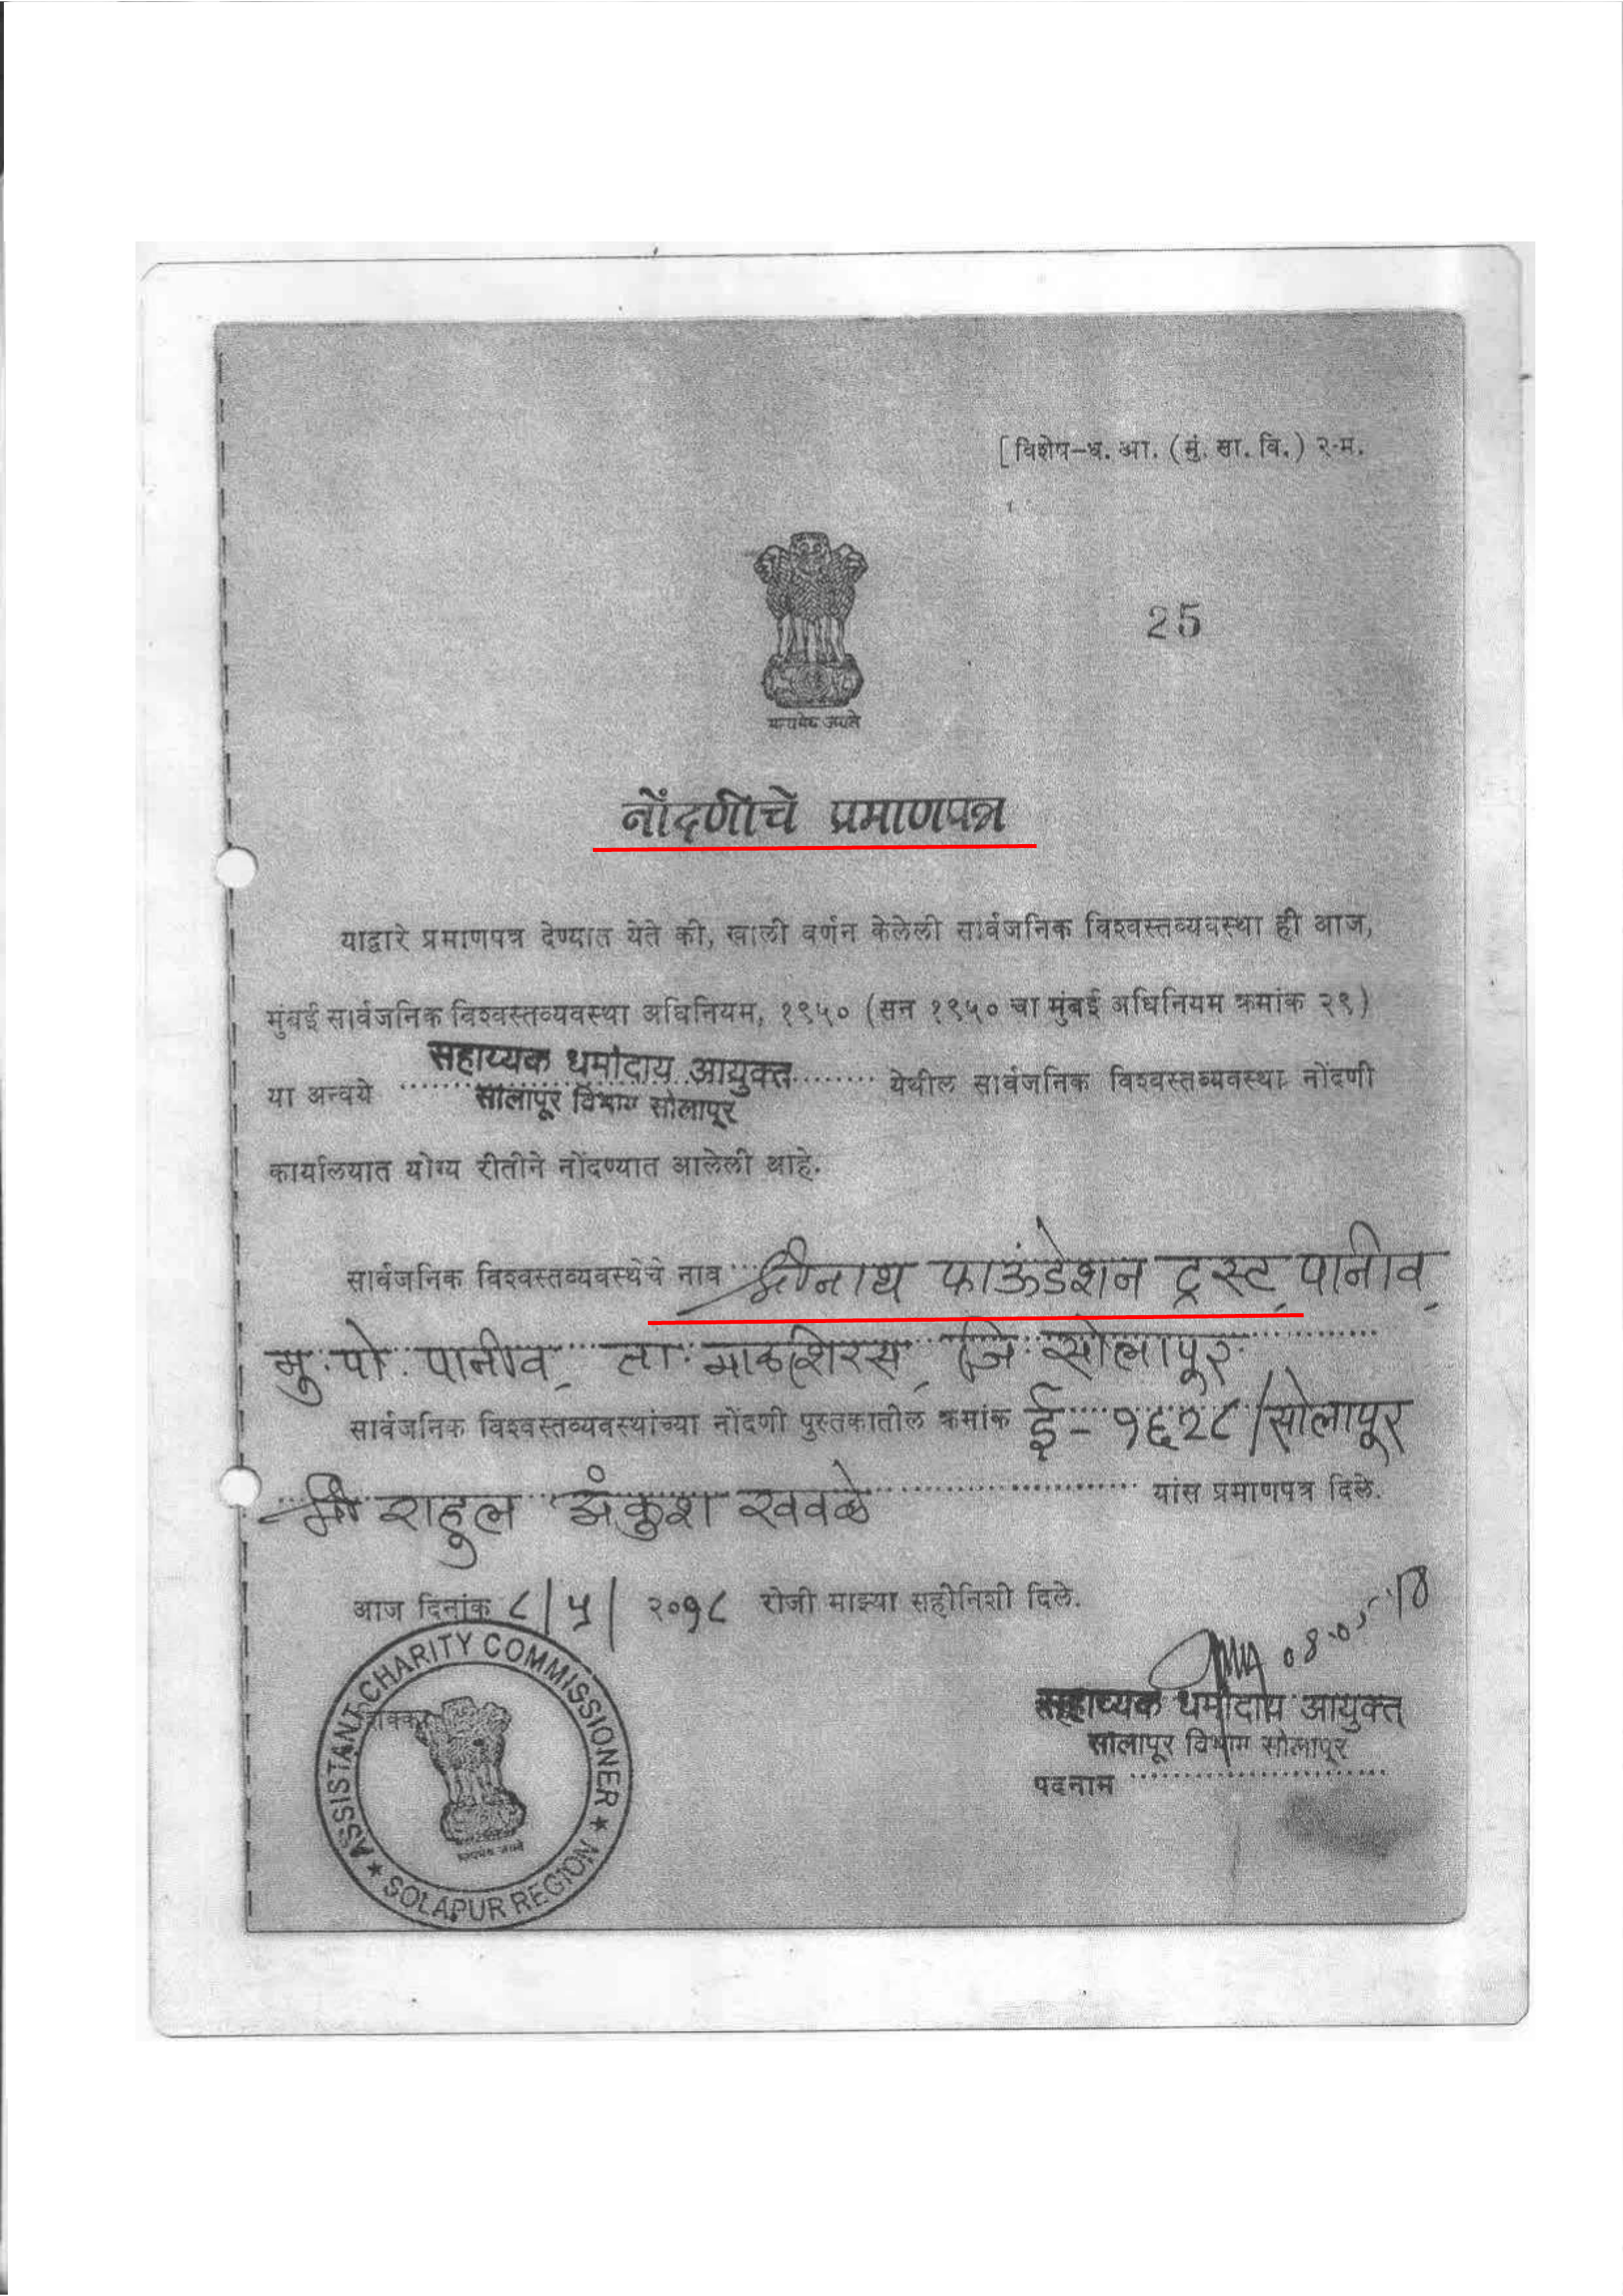 [ विशेष-ध. आ. (मुं. सा. वि.) २-म.
25
सत्यमेव जयते
नोंदणीचे प्रमाणपत्र
याद्वारे प्रमाणपत्र देण्यात येते की, खाली वर्णन केलेली सार्वजनिक विश्वस्तव्यवस्था ही आज,
मुंबई सार्वजनिक विश्वस्तव्यवस्था अधिनियम, १९५० (सन १९५० चा मुंबई अधिनियम क्रमांक २९)
सहाय्यक धर्मादाय आयुक्त
या अन्वये येथील सार्वजनिक विश्वस्तव्यवस्था नोंदणी
सोलापूर विभाग सोलापूर
कार्यालयात योग्य रीतीने नोंदण्यात आलेली आहे.
सार्वजनिक विश्वस्तव्यवस्थेचे नाव श्रीनाथ फाऊंडेशन ट्रस्ट, पानीव,
मु. पो. पानीव, ता. माळशिरस, जि. सोलापूर
सार्वजनिक विश्वस्तव्यवस्थांच्या नोंदणी पुस्तकातील क्रमांक ई-१६२८/सोलापूर
श्री राहुल अंकुश खवळे यांस प्रमाणपत्र दिले.
आज दिनांक ८/५/२०१८ रोजी माझ्या सहीनिशी दिले.
08-05-18
सहाय्यक धर्मादाय आयुक्त
सोलापूर विभाग सोलापूर
पदनाम
शिक्का
ASSISTANT CHARITY COMMISSIONER
सत्यमेव जयते
SOLAPUR REGION